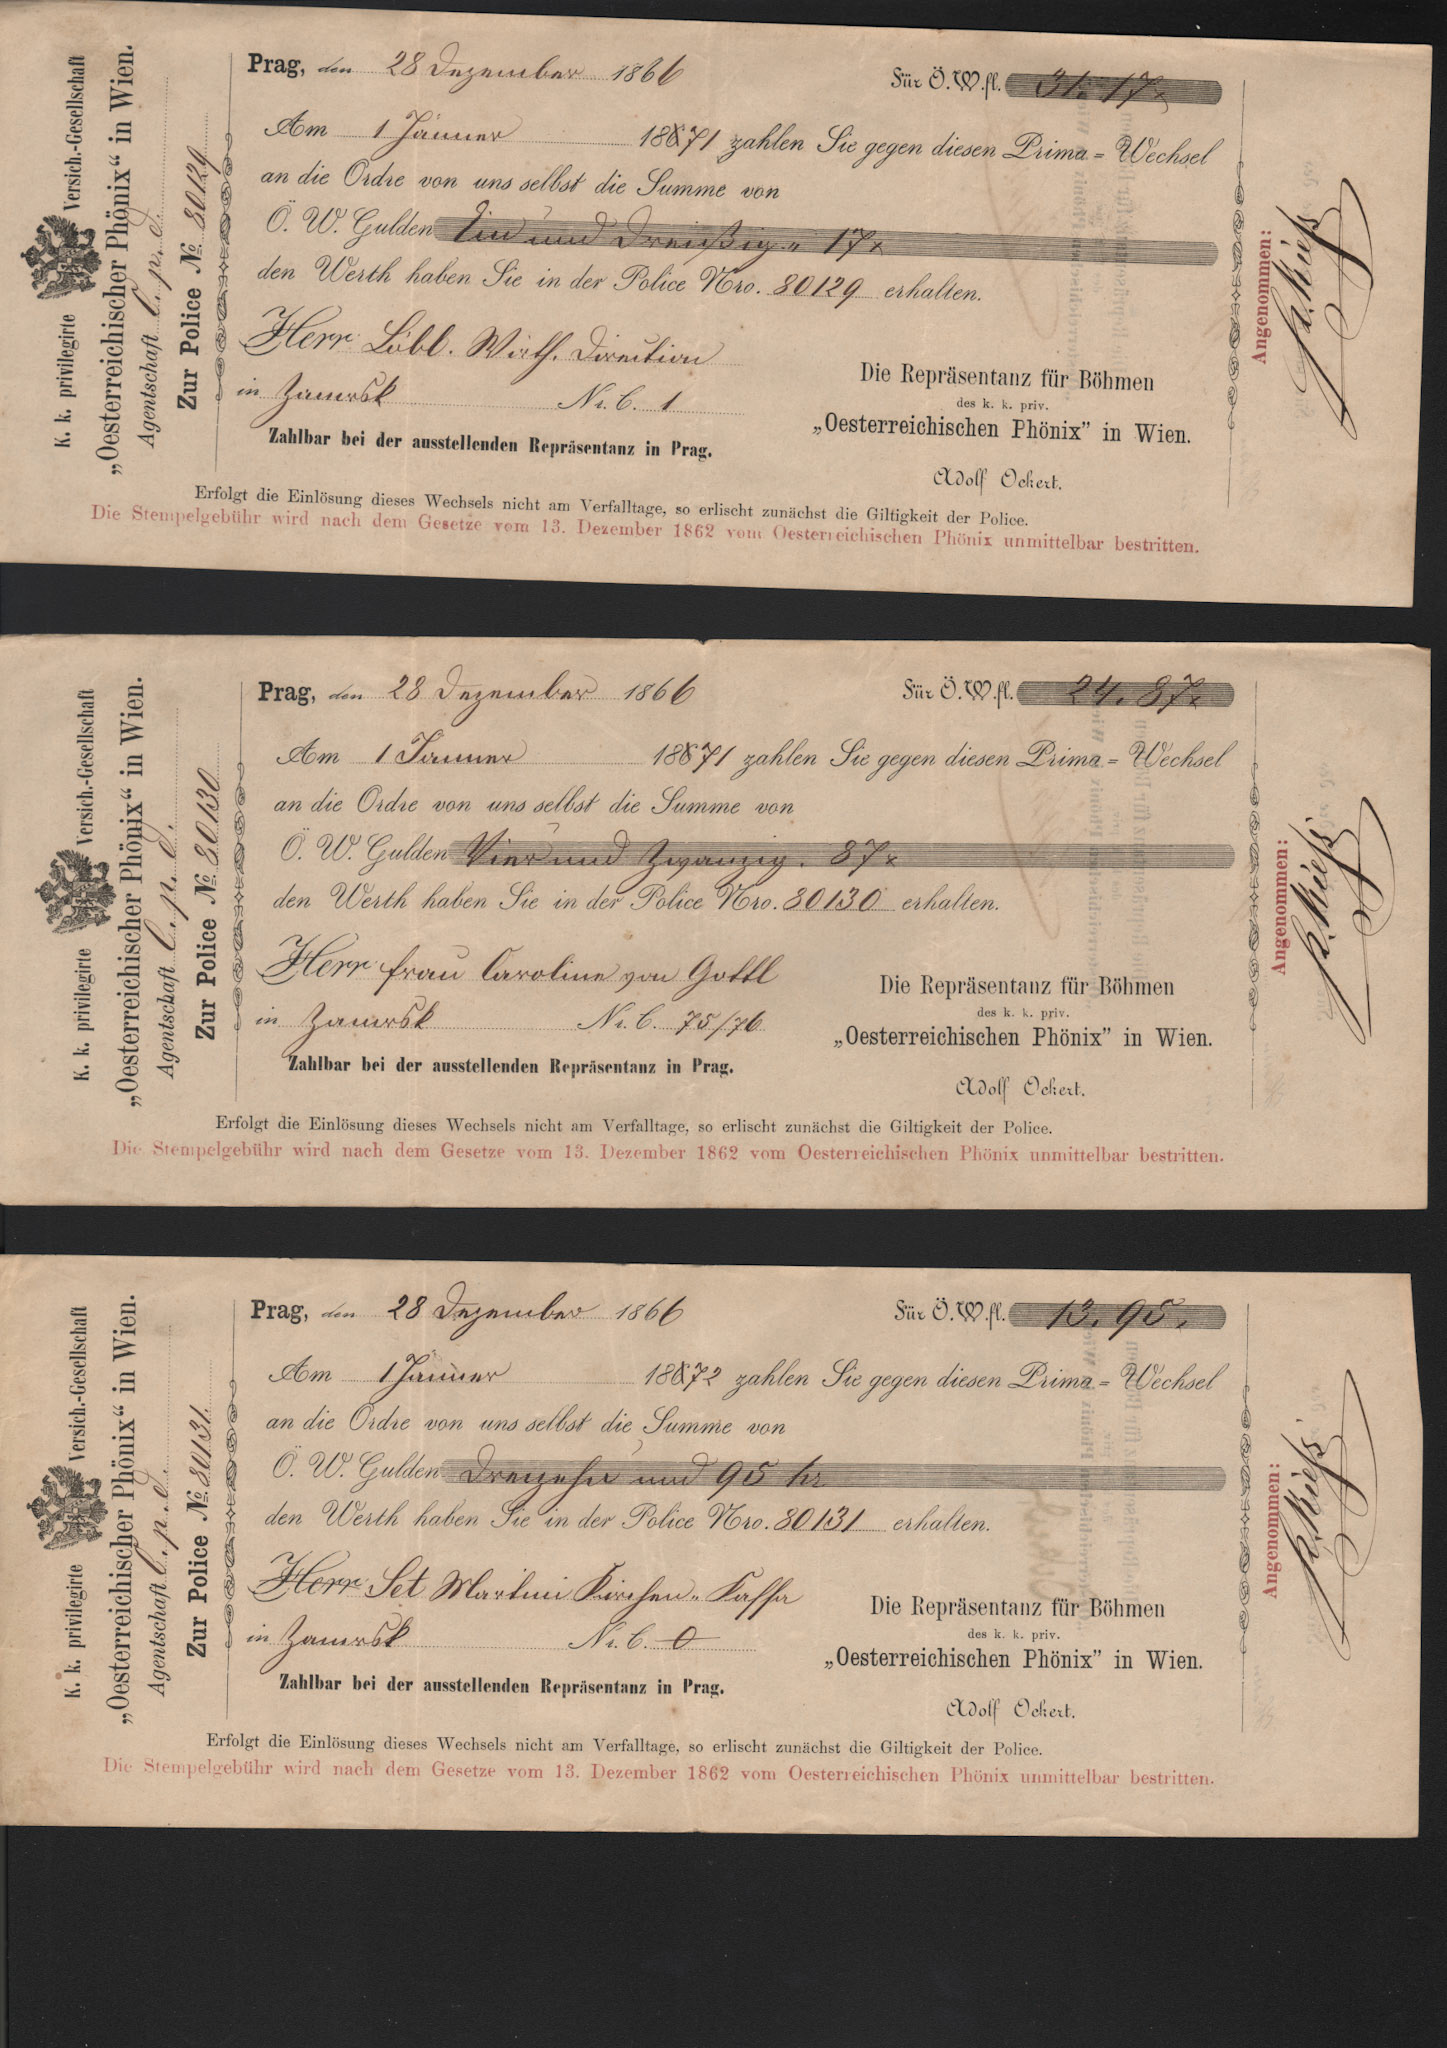 K. k. privilegirte Versich.-Gesellschaft
„Oesterreichischer Phönix“ in Wien.
Agentschaft C. p. d.
Zur Police № 80129
Prag, den 28 Dezember 1866
Für Ö. W. fl. 31. 17x
Am 1 Jänner 18671 zahlen Sie gegen diesen Prima = Wechsel
an die Ordre von uns selbst die Summe von
Ö. W. Gulden Ein und Dreißig " 17x
den Werth haben Sie in der Police Nro. 80129 erhalten.
Herr Löbl. Wirth. Direction
in Zamrsk Nr. C. 1
Zahlbar bei der ausstellenden Repräsentanz in Prag.
Die Repräsentanz für Böhmen
des k. k. priv.
„Oesterreichischen Phönix” in Wien.
Adolf Ockert.
Erfolgt die Einlösung dieses Wechsels nicht am Verfalltage, so erlischt zunächst die Giltigkeit der Police.
Die Stempelgebühr wird nach dem Gesetze vom 13. Dezember 1862 vom Oesterreichischen Phönix unmittelbar bestritten.
Angenommen:
K. k. privilegirte Versich.-Gesellschaft
„Oesterreichischer Phönix“ in Wien.
Agentschaft C. p. d.
Zur Police № 80130
Prag, den 28 Dezember 1866
Für Ö. W. fl. 24. 87x
Am 1 Jänner 18671 zahlen Sie gegen diesen Prima = Wechsel
an die Ordre von uns selbst die Summe von
Ö. W. Gulden Vier und Zwanzig . 87x
den Werth haben Sie in der Police Nro. 80130 erhalten.
Herr Frau Caroline von Gottl
in Zamrsk Nr. C. 75/76
Zahlbar bei der ausstellenden Repräsentanz in Prag.
Die Repräsentanz für Böhmen
des k. k. priv.
„Oesterreichischen Phönix” in Wien.
Adolf Ockert.
Erfolgt die Einlösung dieses Wechsels nicht am Verfalltage, so erlischt zunächst die Giltigkeit der Police.
Die Stempelgebühr wird nach dem Gesetze vom 13. Dezember 1862 vom Oesterreichischen Phönix unmittelbar bestritten.
Angenommen:
K. k. privilegirte Versich.-Gesellschaft
„Oesterreichischer Phönix“ in Wien.
Agentschaft C. p. d.
Zur Police № 80131.
Prag, den 28 Dezember 1866
Für Ö. W. fl. 13. 95.
Am 1 Jänner 18672 zahlen Sie gegen diesen Prima = Wechsel
an die Ordre von uns selbst die Summe von
Ö. W. Gulden Dreizehn und 95 kr
den Werth haben Sie in der Police Nro. 80131 erhalten.
Herr Sct Martini Kirchen-Kassa
in Zamrsk Nr. C. 0
Zahlbar bei der ausstellenden Repräsentanz in Prag.
Die Repräsentanz für Böhmen
des k. k. priv.
„Oesterreichischen Phönix” in Wien.
Adolf Ockert.
Erfolgt die Einlösung dieses Wechsels nicht am Verfalltage, so erlischt zunächst die Giltigkeit der Police.
Die Stempelgebühr wird nach dem Gesetze vom 13. Dezember 1862 vom Oesterreichischen Phönix unmittelbar bestritten.
Angenommen: